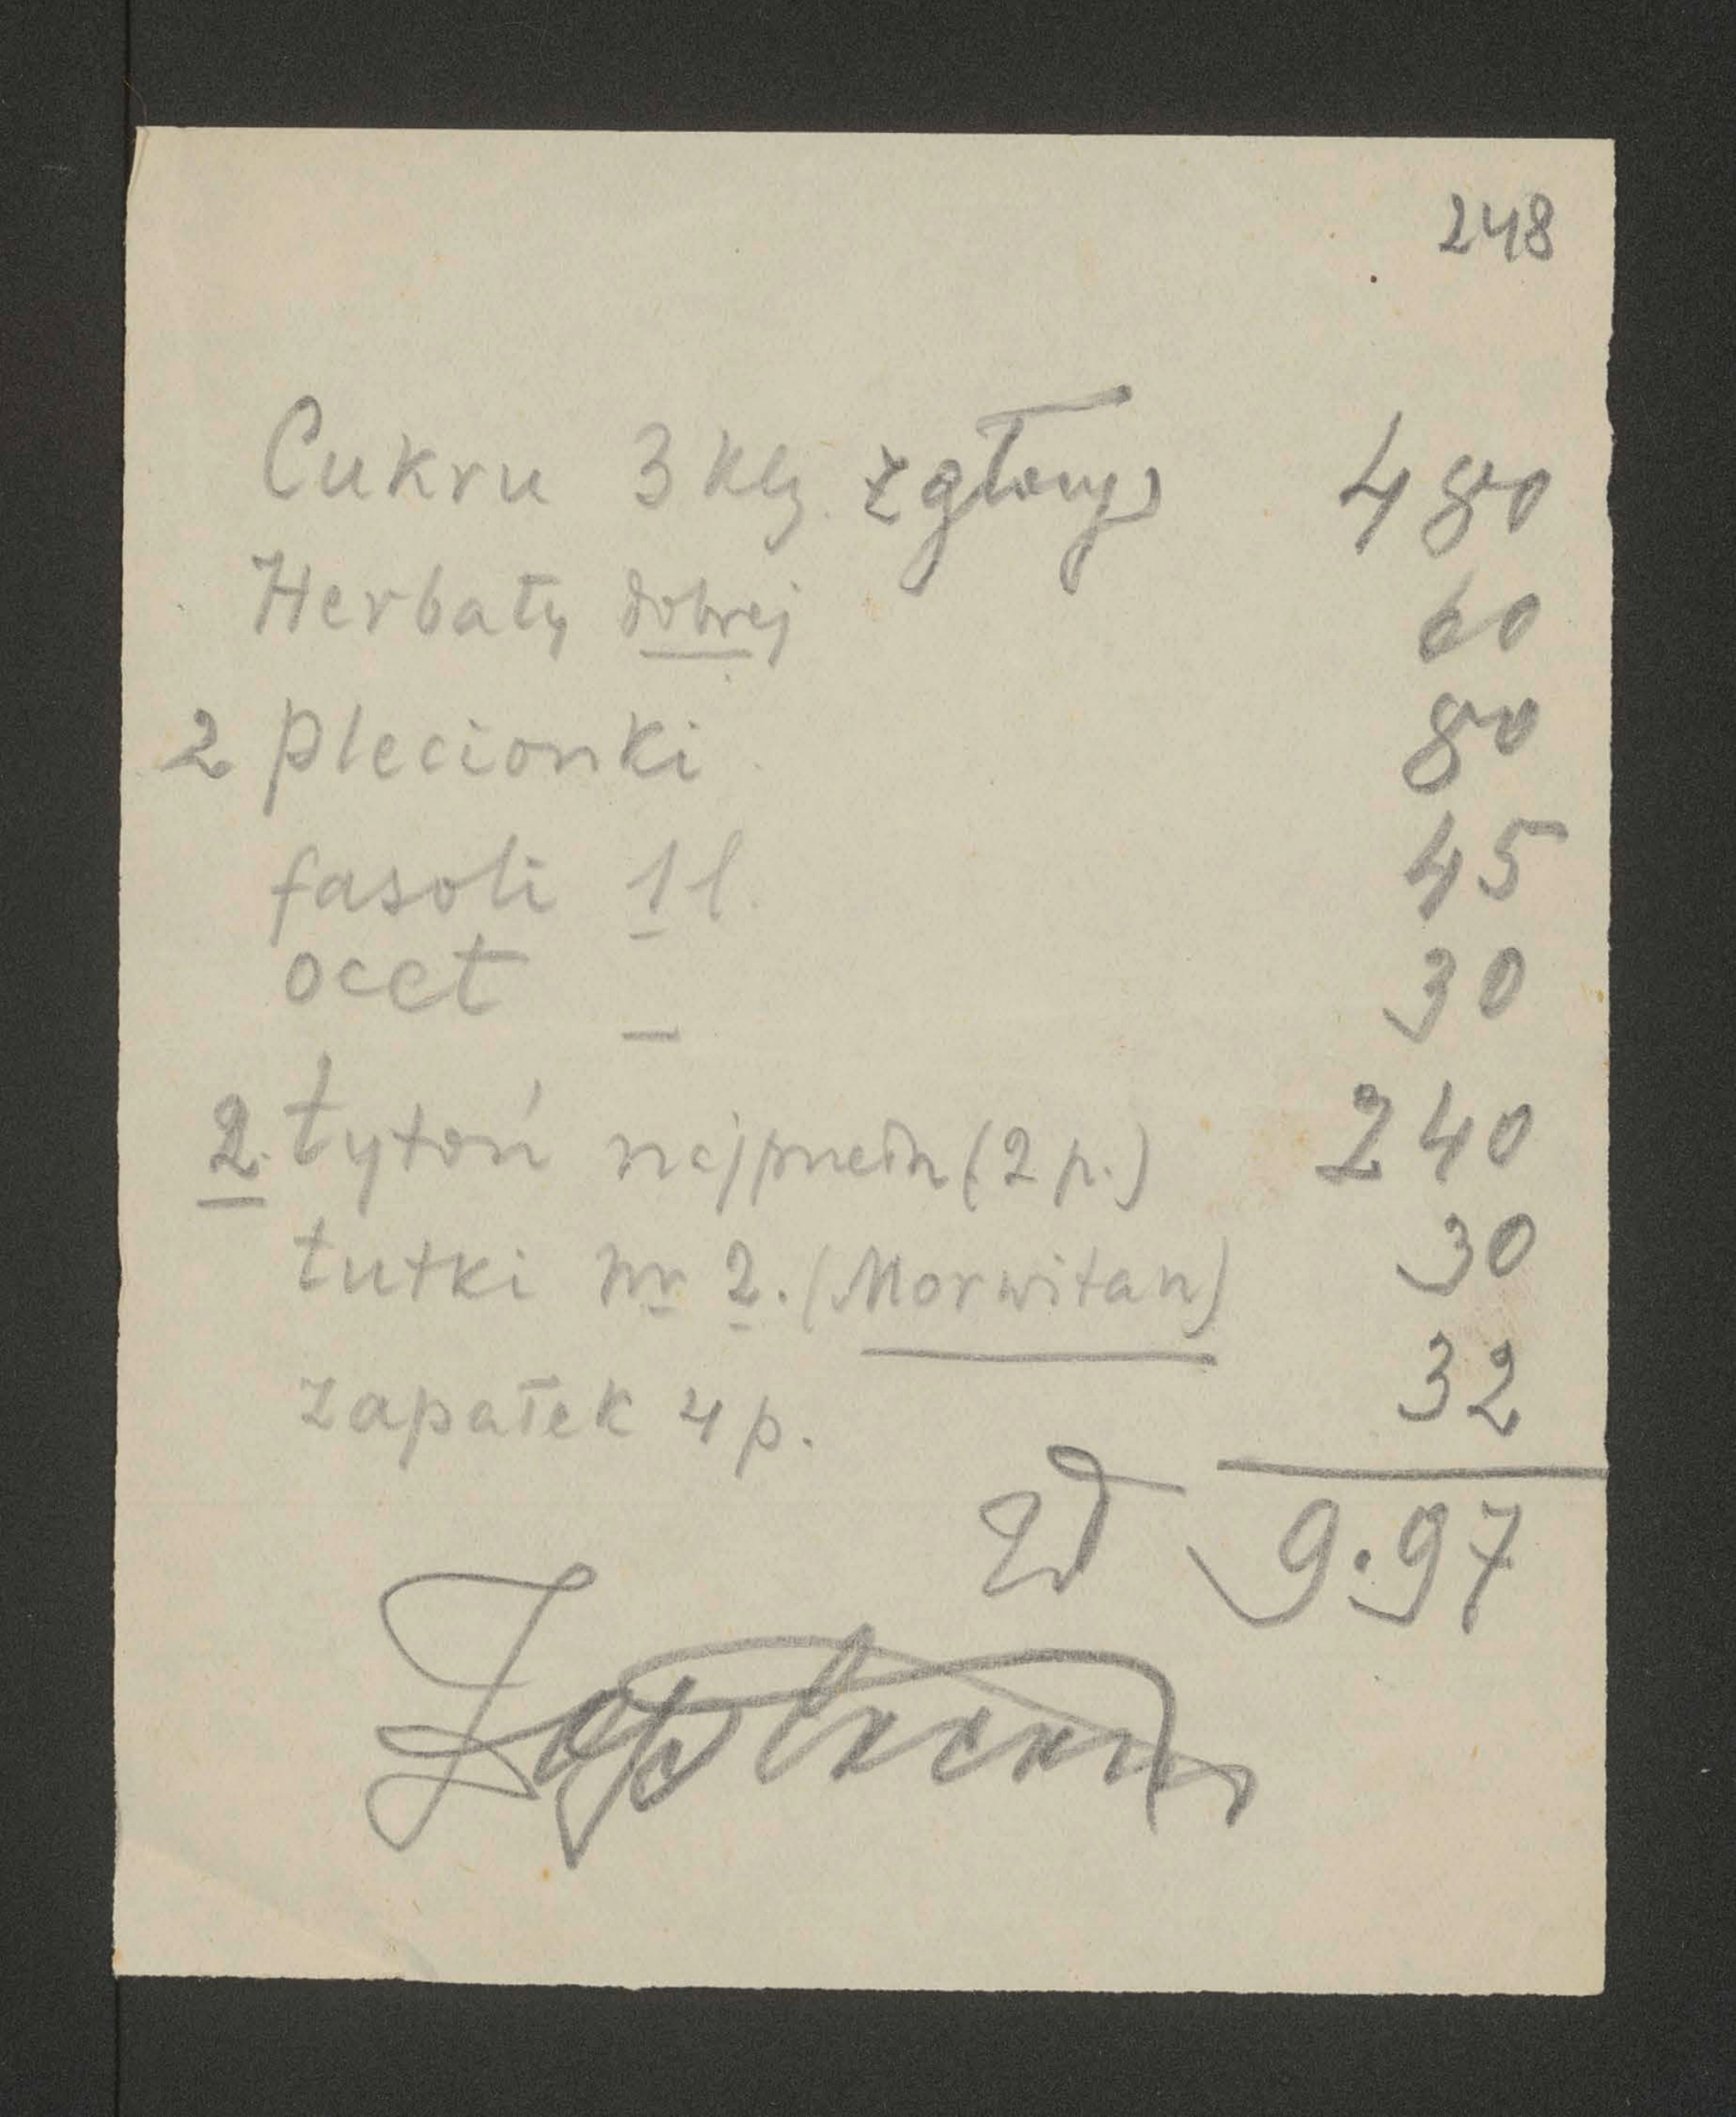 248
Cukru 3 klg. z głowy 480
Herbaty dobrej 60
2 plecionki 80
fasoli 1 l. 45
ocet 30
2. tytoń najprzedn (2 p.) 240
tutki nr 2. (Morwitan) 30
zapałek 4 p. 32
zł 9.97